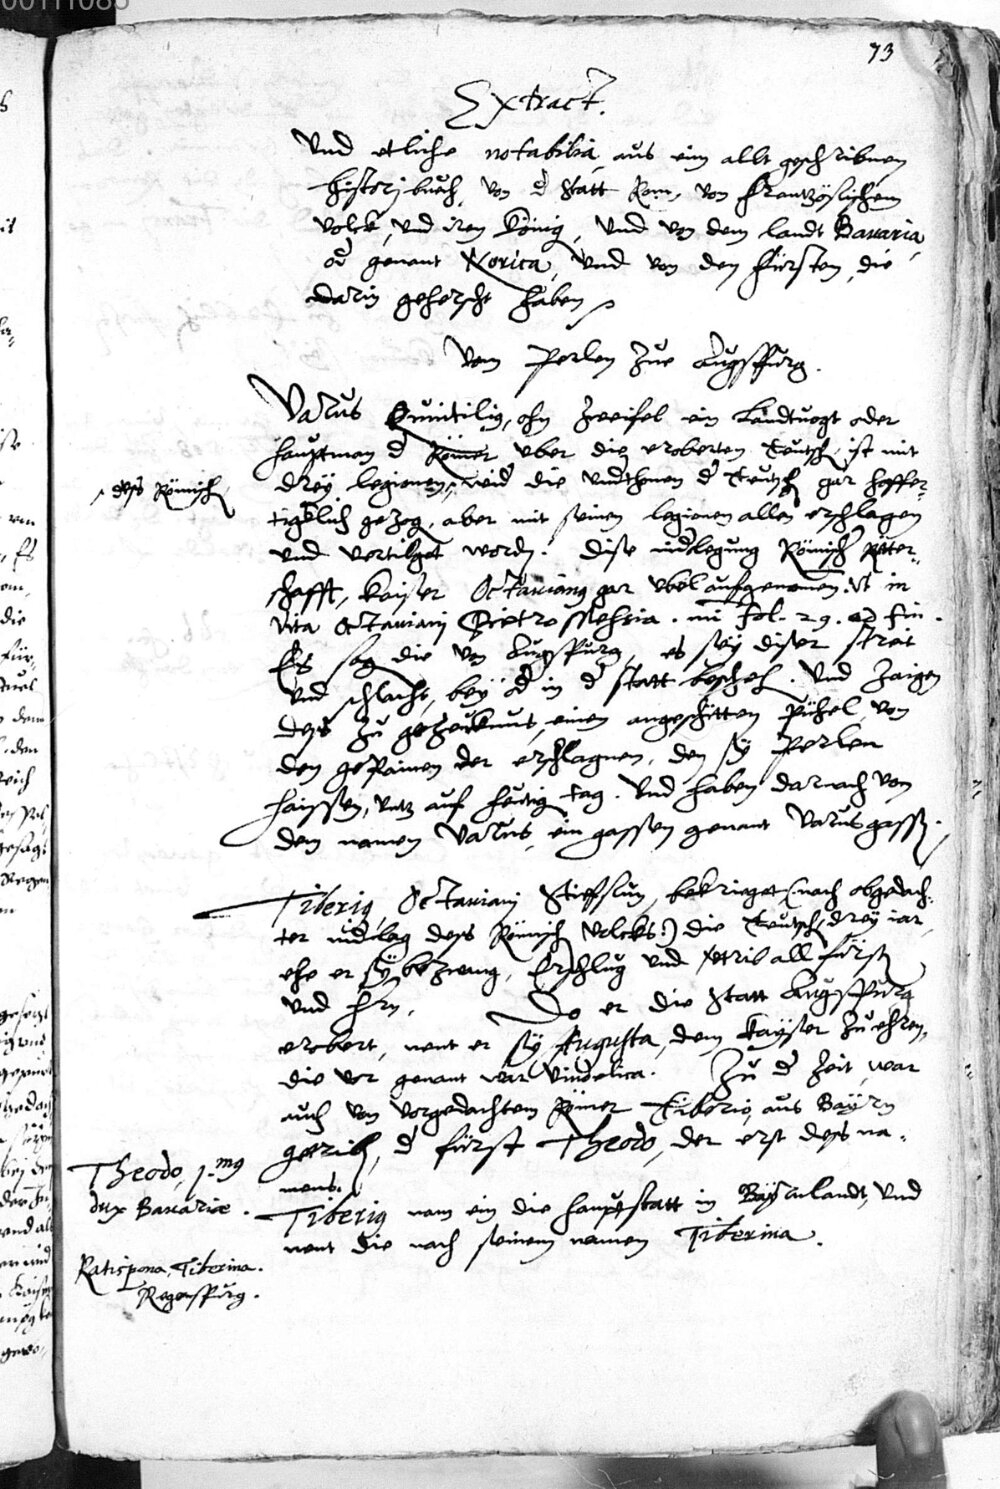 73
Extract.
Vnd etliche notabilia aus eim allt geschribnen
historibuech, von d Statt Rom, von Frantzösischem
volck, vnd iren König, Vnd von dem landt Bauaria,
od genant Norica, Vnd von den Fürsten, die
darin geherscht haben
Vom Perlen zue Augspurg.
Varus Quintilig, ohn zweifel ein Landtuogt oder
hauptman d Römer vber die eroberten Teutsch, ist mit
drey legionen, wid die vndthonen d Teutsch gar hoffer-
des Römisch
tigklich gezog, aber mit seinen legionen allen erschlagen
vnd vertilget word. Dise nidlegung Römisch Ritter-
schafft, Kaiser Octauiang gar vbel aufgenomen. Vt in
vita Octauiani Pietro Messia. mi fol. 29.
Es sag die von Augspurg, es sey diser streit
vnd schlacht, bey od in d statt beschech. Vnd zaigen
des zu gezeucknus, einen angeschitten Pühel von
den gePainen der erschlagnen, den sy Perlen
haissen, vntz auf heutig tag. Vnd haben darnach von
dem namen Varus, ein gassen genant Varusgass.
Tiberig, Octauiani Stieffsun, bekrieget (:nach obgedach-
ter nidlag des Römisch Volcks:) die Teutsch drey iar,
ehe er sy bezwang, Erschlug und vetrib all fürst
vnd hrn. Do er die Statt Augspurg
erobert, nent er sy Augusta, dem Kayser zu ehren,
die vor genant war Vindelica. Zu d zeit war
auch von vorgedachtem Römer Tiberio, aus Bayrn
getrib, d fürst Theodo, der erst des na-
mens.
Theodo, 1.mg
dux Bauariæ.
Tiberig nam ein die hauptstatt in Bayrnlandt, Vnd
nent die nach seinem namen Tiberina.
Ratispona, Tiberina.
Regenspurg.